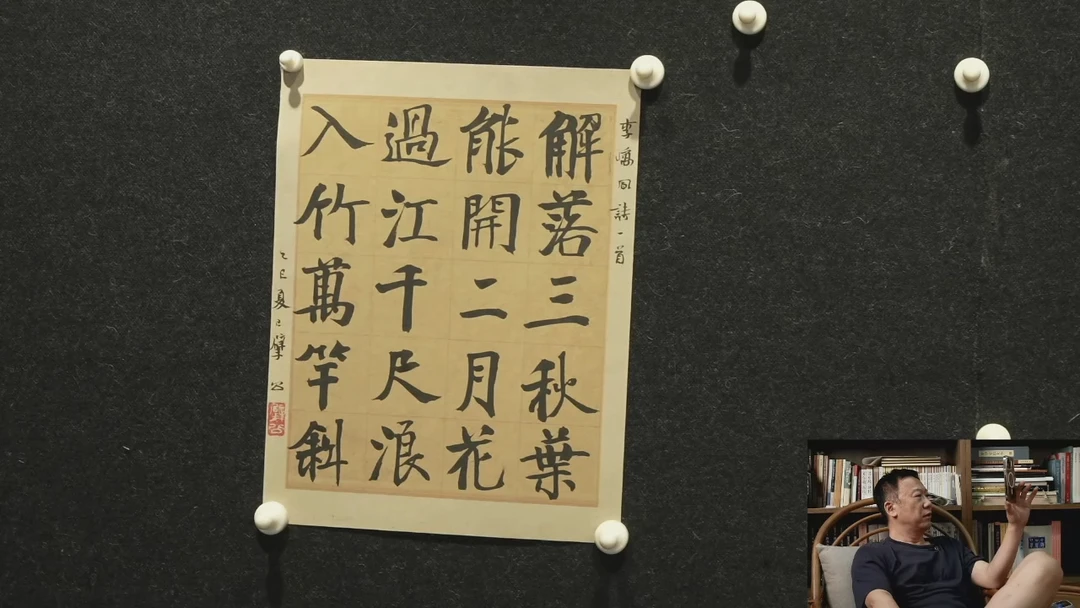 李嶠風詩一首
解落三秋葉
能開二月花
過江千尺浪
入竹萬竿斜
乙巳夏日擘公